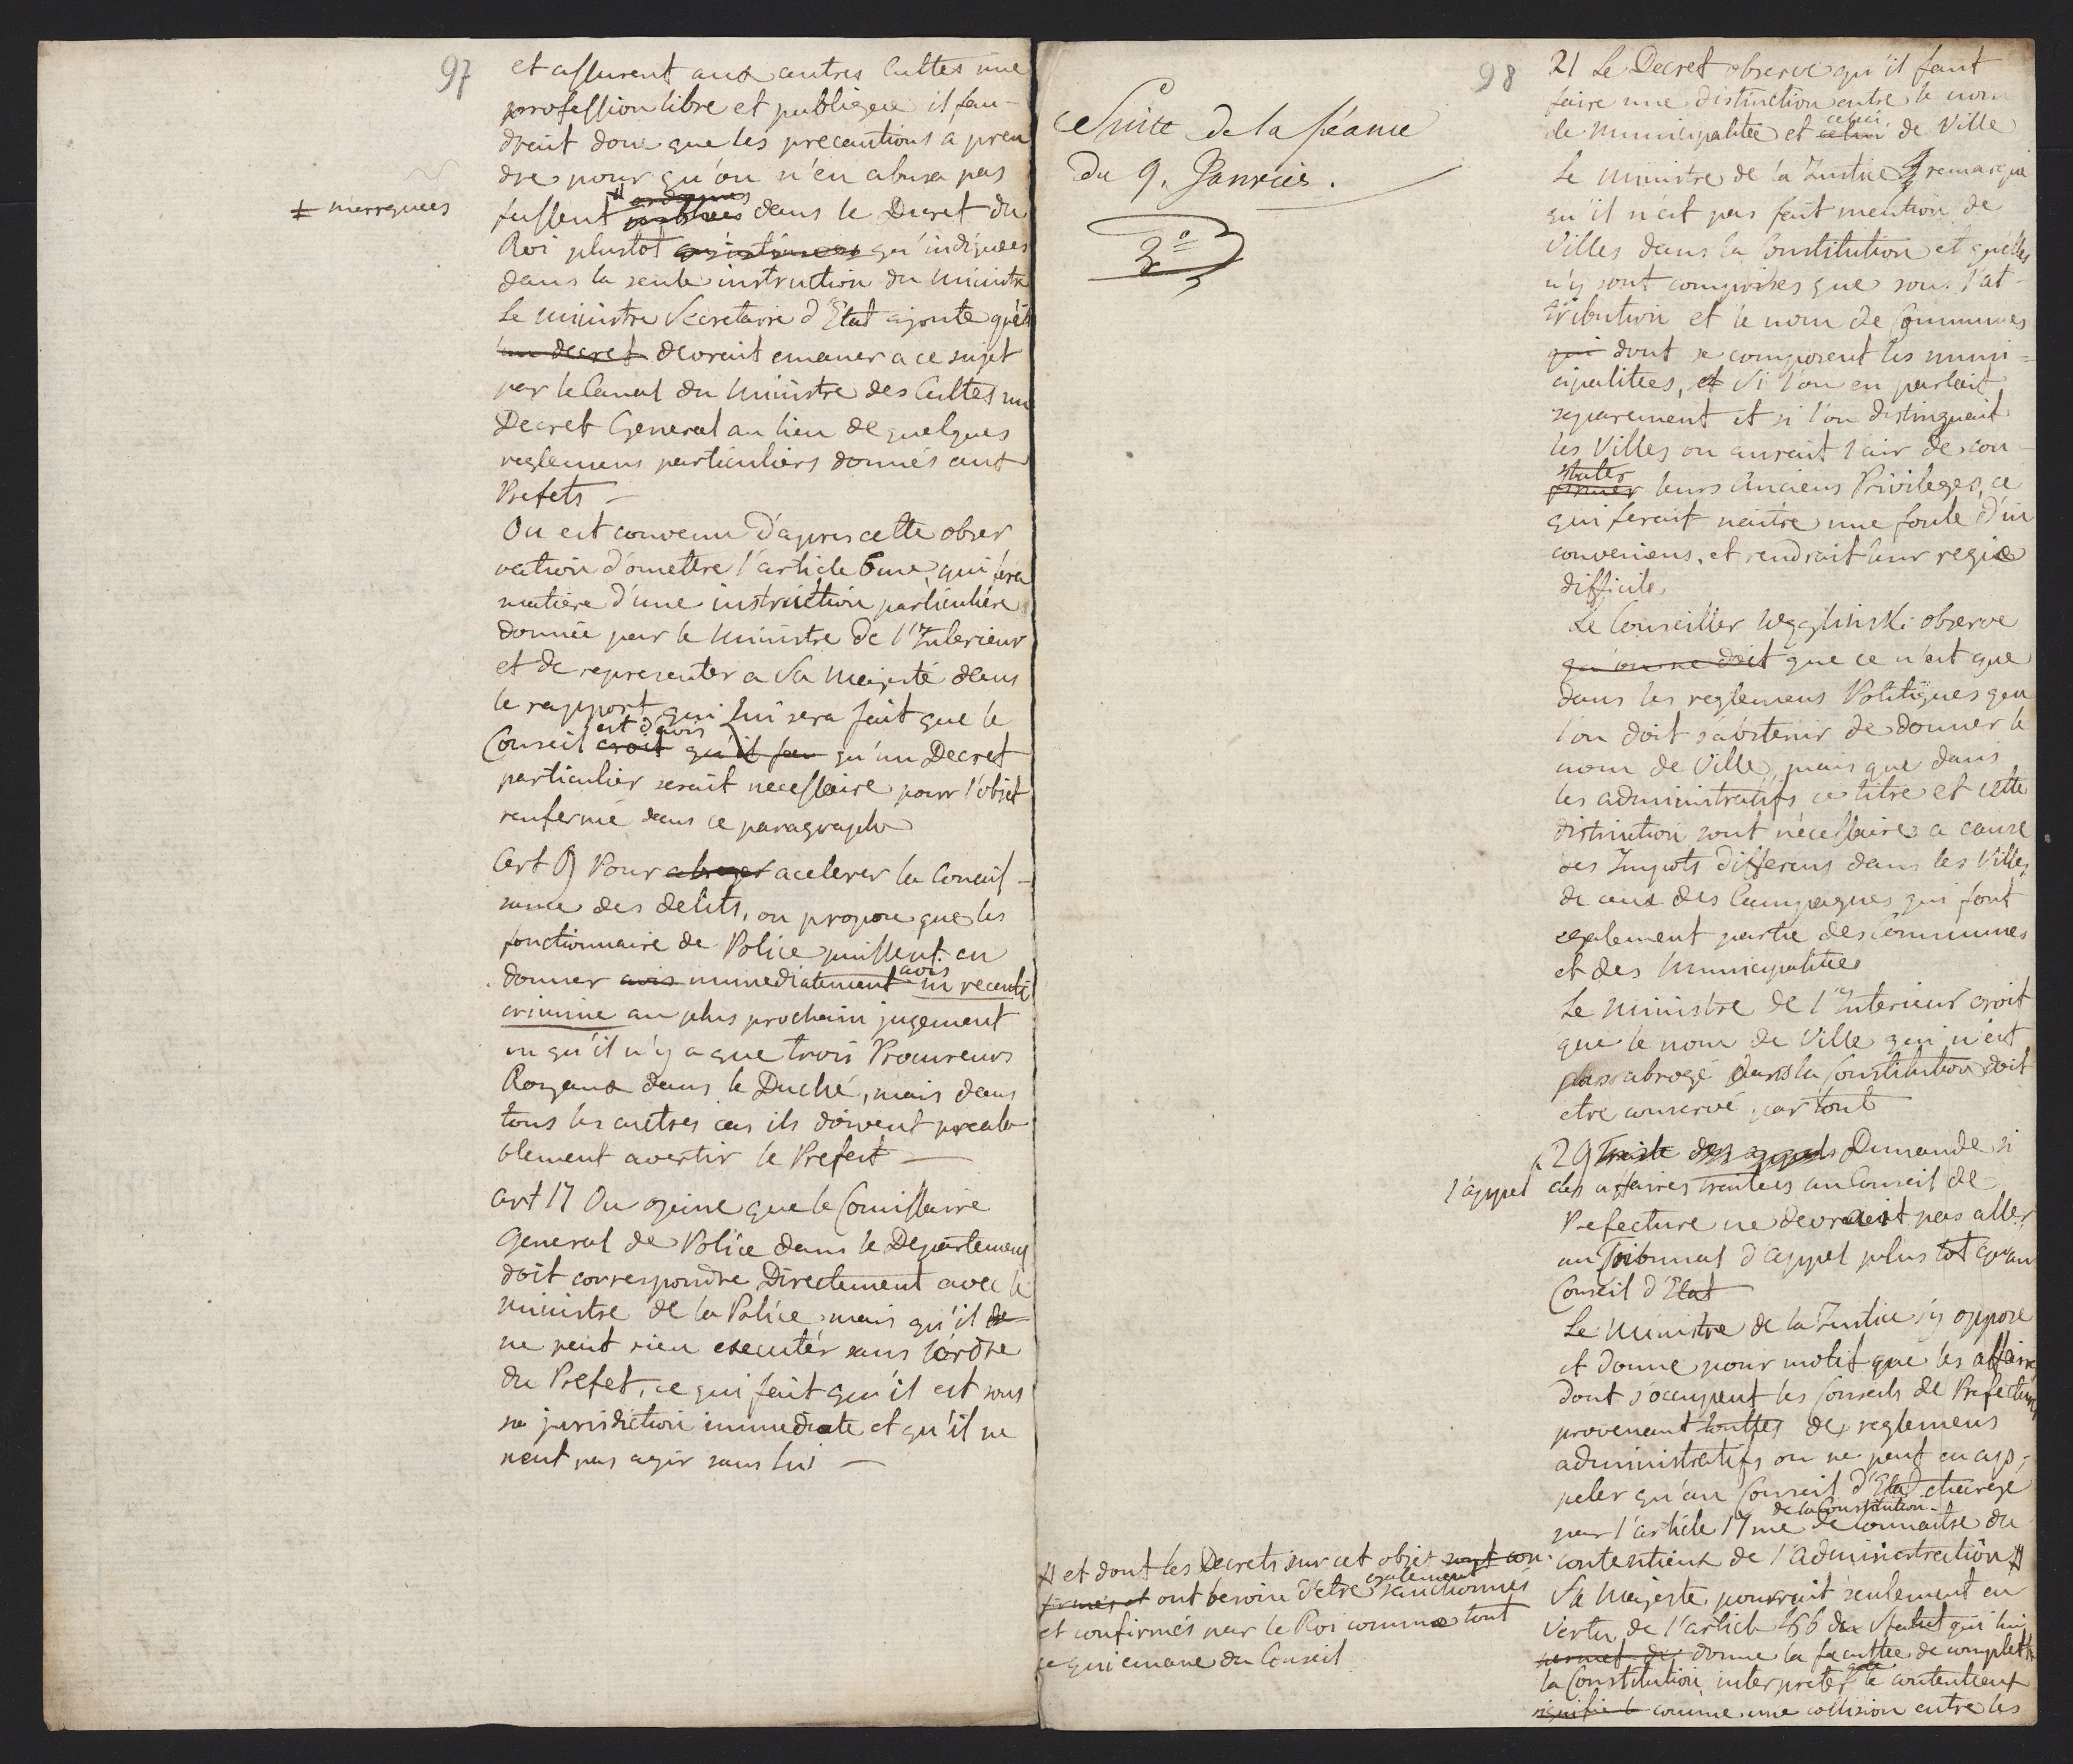 97
et assurent aux autres Cultes une
profession libre et publique il fau-
drait donc que les precautions a pren
dre pour qu'on n'en abusa pas
# marquees
fussent # ordonnees publiees dans le Decret du
Roi plustot qu'indiquees
dans la seule instruction du Ministre
Le Ministre Secretaire d'Etat ajoute qu'il
un decret devrait emaner a ce sujet
par le Canal du Ministre des Cultes un
Decret General au lieu de quelques
reglemens particuliers donnés aux
Prefets —
On est convenu d'apres cette obser
vation d'omettre l'article 6me, qui sera
matiere d'une instruction particuliere
donnée par le Ministre de l'Interieur
et de representer a Sa Majesté dans
le rapport qui Lui sera fait que le
Conseil est d'avis croit qu'il fau qu'un Decret
particulier serait necessaire pour l'objet
renfermé dans ce paragraphe
Art 9) Pour abreger acelerer la Connais-
sance des delits, on propose que les
fonctionnaire de Police puissent en
donner avis immediatement avis in recenti
crimine au plus prochain jugement
vu qu'il n'y a que trois Procureurs
Royaux dans le Duché, mais dans
tous les autres cas ils doivent preala
blement avertir le Prefect —
Art 17 On opine que le Comissaire
General de Police dans le Departement
doit correspondre Directement avec le
Ministre de la Police mais qu'il de
ne peut rien executér sans l'ordre
du Prefet, ce qui fait qu'il est sous
sa jurisdiction immediate et qu'il ne
peut pas agir sans lui —
98
Suite de la séance
du 9. Janvier.
3°
21 Le Decret observe qu'il faut
faire une distinction entre le nom
de Municipalitée et celui celui de Ville
Le Ministre de la Justice remarque
qu'il n'est pas fait mention de
Villes dans la Constitution et qu'elles
n'y sont comprises que sous l'at-
tribution et le nom de Communes
qui dont se composent les muni=
cipalitees, et Si l'on en parlait
separement et si l'on distinguait
les Villes on aurait l'air de con-
stater firmer leurs Anciens Privileges, ce
qui ferait naitre une foule d'in
conveniens, et rendrait leur regie
difficile,
Le Conseiller Węgliński observe
qu'on ne doit que ce n'est que
dans les reglemens Politiques que
l'on doit s'abstenir de donner le
nom de Ville, mais que dans
les administratifs ce titre et cette
distinction sont nécessaires a cause
des Impots differens dans les Villes
de ceux des Campagnes qui font
egalement partie des Communes
et des Municipalitées
Le Ministre de l'Interieur croit
que le nom de Ville qui n'est
pas abrogé dans la Constitution doit
etre conservé par tout
a 29 Demande si
l'appel des affaires traitees au Conseil de
Prefecture ne devrait pas aller
au Tribunal d'appel plus tot qu'au
Conseil d'Etat
Le Ministre de la Justice s'y oppose
et donne pour motif que les affaires
dont s'occupent les Conseils de Prefecture
provenant toutes des reglemens
administratifs on ne peut en ap-
peler qu'au Conseil d'Etat chargé
par l'article 17me de la Constitution de connaitre du
contentieux de l'Administration #
# et dont les Decrets sur cet objet sont con-
firmés et ont besoin d'etre egalement sanctionnés
et confirmés par le Roi comme tout
ce qui emane du Conseil
Sa Majesté pourrait seulement en
vertu de l'article 86 du Statut qui lui
permet de donne la facultée de completter
la Constitution interpreter que le contentieux
signifie le comme une collision entre les